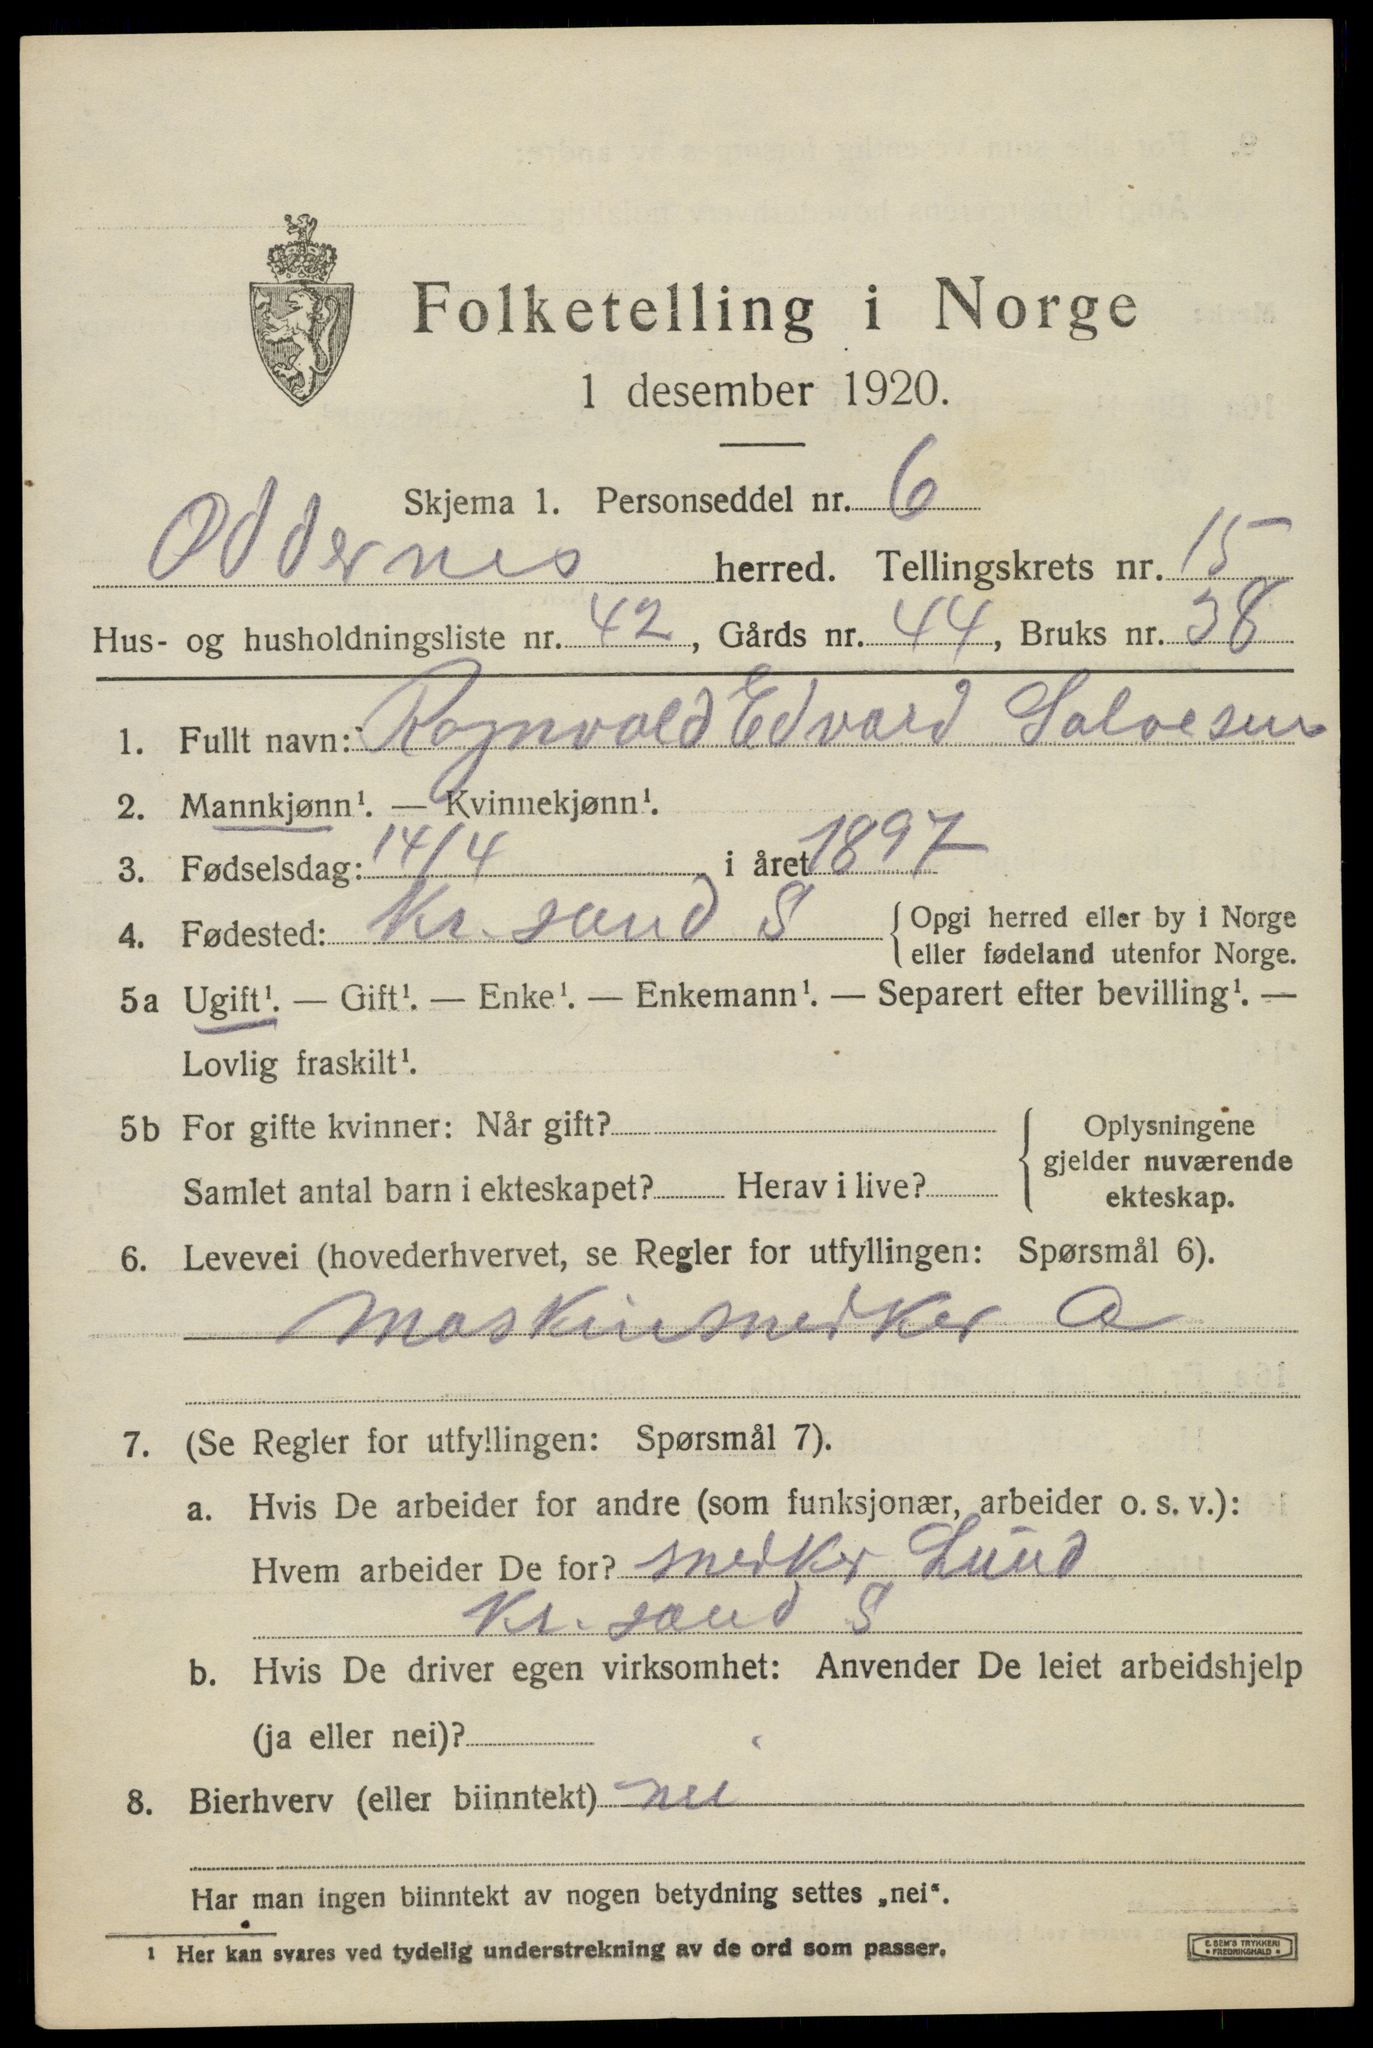 Folketelling i Norge
1 desember 1920.
Skjema 1. Personseddel nr. 6
Oddernes herred. Tellingskrets nr. 15
Hus- og husholdningsliste nr. 42, Gårds nr. 44, Bruks nr. 38
1. Fullt navn: Ragnvald Edvard Salvesen
2. Mannkjønn¹. — Kvinnekjønn¹.
3. Fødselsdag: 14/4 i året 1897
4. Fødested: Kr. sand S { Opgi herred eller by i Norge
eller fødeland utenfor Norge.
5a Ugift¹. — Gift¹. — Enke¹. — Enkemann¹. — Separert efter bevilling¹. —
Lovlig fraskilt¹.
5b For gifte kvinner: Når gift? { Oplysningene
gjelder nuværende
Samlet antal barn i ekteskapet? Herav i live? ekteskap.
6. Levevei (hovederhvervet, se Regler for utfyllingen: Spørsmål 6).
Maskinsnedker a
7. (Se Regler for utfyllingen: Spørsmål 7).
a. Hvis De arbeider for andre (som funksjonær, arbeider o. s. v.):
Hvem arbeider De for? snedker Lund
Kr. sand S
b. Hvis De driver egen virksomhet: Anvender De leiet arbeidshjelp
(ja eller nei)?
8. Bierhverv (eller biinntekt) nei
Har man ingen biinntekt av nogen betydning settes „nei“.
¹ Her kan svares ved tydelig understrekning av de ord som passer.
E. SEM'S TRYKKERI
• FREDRIKSHALD •